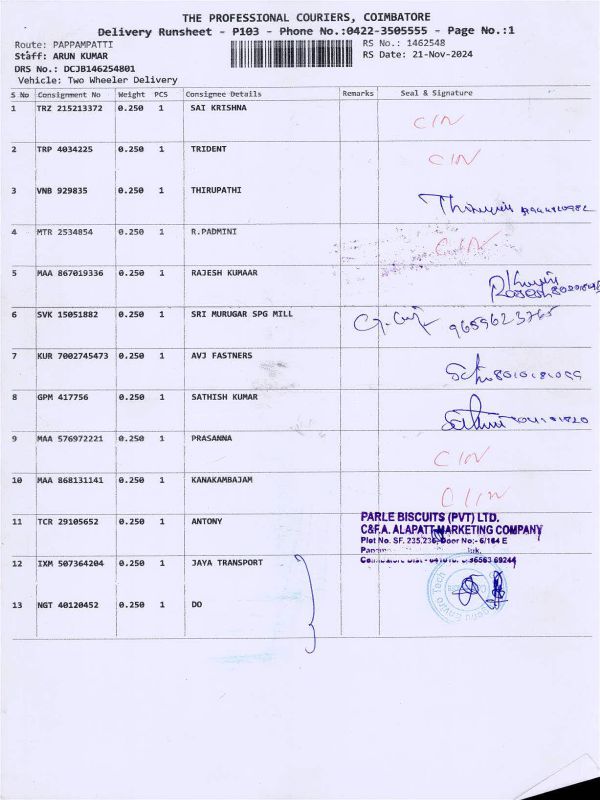 THE PROFESSIONAL COURIERS, COIMBATORE
Delivery Runsheet - P103 - Phone No.:0422-3505555 - Page No.:1
Route: PAPPAMPATTI RS No.: 1462548
Staff: ARUN KUMAR RS Date: 21-Nov-2024
DRS No.: DCJB146254801
Vehicle: Two Wheeler Delivery
S No Consignment No Weight PCS Consignee Details Remarks Seal & Signature
1 TRZ 215213372 0.250 1 SAI KRISHNA C/N
2 TRP 4034225 0.250 1 TRIDENT C/N
3 VNB 929835 0.250 1 THIRUPATHI
4 MTR 2534854 0.250 1 R.PADMINI C/N
5 MAA 867019336 0.250 1 RAJESH KUMAAR
6 SVK 15051882 0.250 1 SRI MURUGAR SPG MILL
7 KUR 7002745473 0.250 1 AVJ FASTNERS
8 GPM 417756 0.250 1 SATHISH KUMAR
9 MAA 576972221 0.250 1 PRASANNA C/N
10 MAA 868131141 0.250 1 KANAKAMBAJAM
11 TCR 29105652 0.250 1 ANTONY
PARLE BISCUITS (PVT) LTD.
C&F.A. ALAPATT MARKETING COMPANY
Plot No. SF. 235,236, Door No:- 6/164 E
12 IXM 507364204 0.250 1 JAYA TRANSPORT
13 NGT 40120452 0.250 1 DO